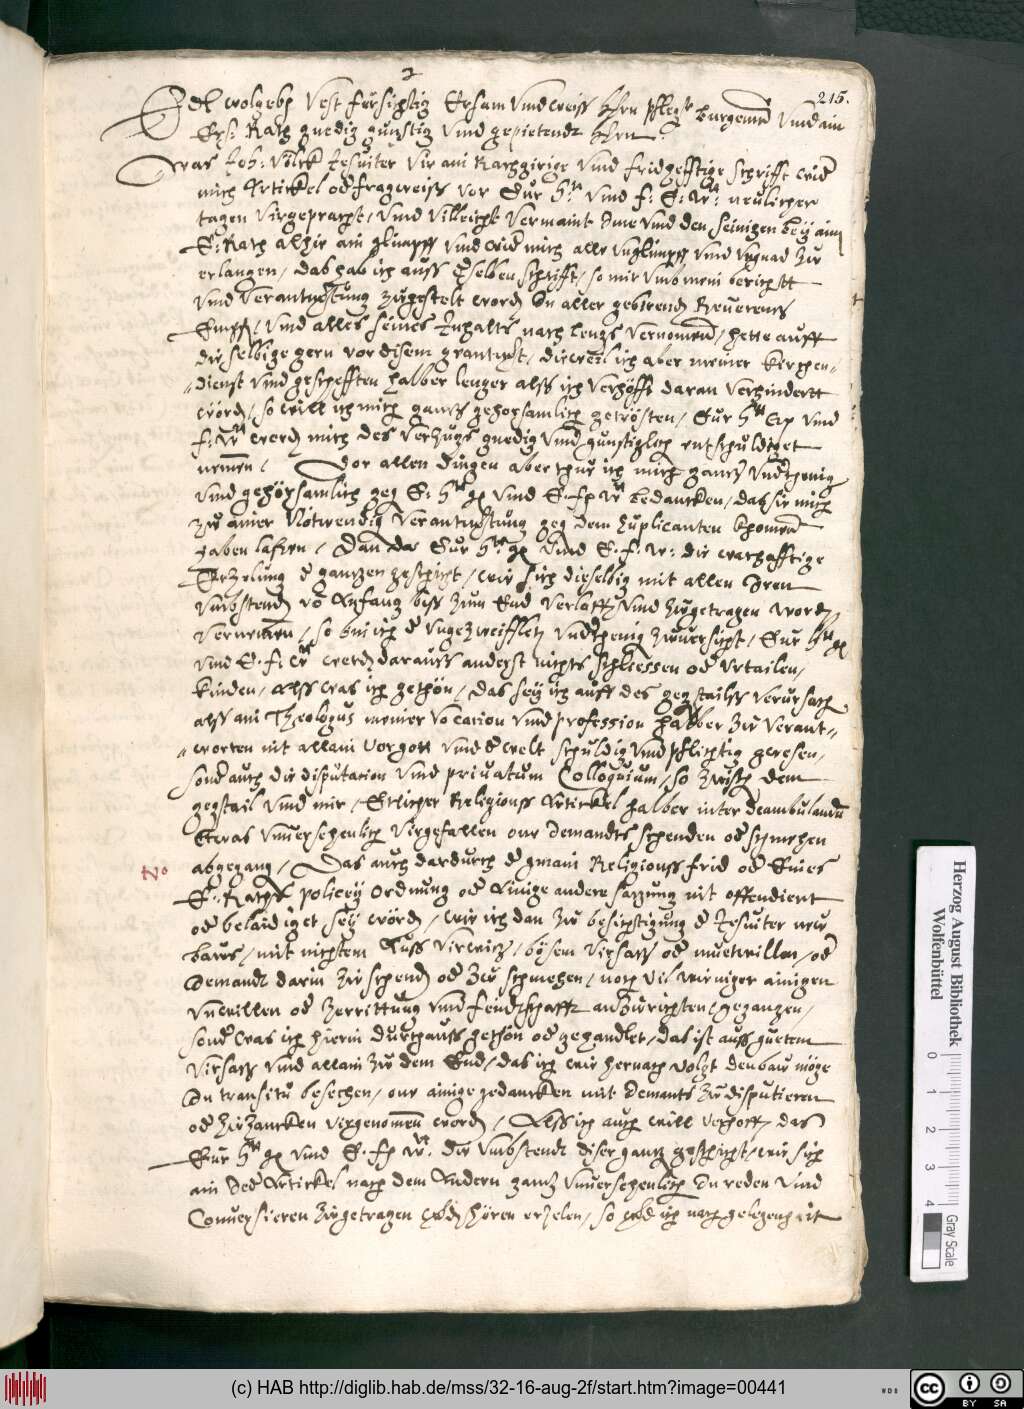 215.
Edl wolgeb. Vest fürsichtig Ersam vnnd weiss Hern pfleger burgermaister vnnd ain
Ers: Rath gnedig gunstig vnnd gepietende Hern
Was Joh: Völck Jesuiter vir ain Rachgirige vnnd fridhessige schrifft wider
mich Artickel oder fragweiss vor Eur vnnd f: E: W: neulicher
tagen virgepracht, vnnd villeicht vermaint Ime vnnd den seinigen bey aim
E: Rath alhir ain glimpff vnnd wider mich alle vnglimpff vnnd vngnad zu
erlangen, das hab ich auss derselben schrifft, so mir vmb mein bericht
vnnd verantwortung zugestelt worden In aller gebirenden Reuerentz
Empfangen, vnnd alles seines Inhalts nach lengs vernomen, hette auff
die selbige gern vor disem geantwort, dieweil ich aber meiner kirchen-
dienst vnnd geschefften halber lenger alss ich verhofft daran verhindert
worden, so will ich mich gantz gehorsamlich getrösten, Eur vnnd
f: W: werden mich des verzugs gnedig vnnd gunstiglich entschuldiget
nemen. Vor allen dingen aber thue ich mich gantz vnderthenig
vnnd gehorsamlich gegen E: vnnd E. f. W: bedancken, das sie mich
zu ainer Notwendig verantwortung gegen dem Supplicanten khomen
haben lassen, Dan da Eur vnnd E. f. W: die warhafftige
Erzelung der gantzen geschicht, wie sich dieselbig mit allen Iren
vmbstenden von Anfang biss zum End verloffen vnnd zugetragen worden,
vernemen, so bin ich der vngezweiffleten vnderthenig zuuersicht, Eur
vnnd E. f: W: werden darauss anderst nichts schliessen oder vrtailen
kinden, Alss was ich gethon, das sey ich auss des gegenthailss verursach
alss ain Theologus meiner Vocation vnnd profession halber zu verant-
worten nit allain vor gott vnnd der welt schuldig vnnd pflichtig gewesen,
sonder auch die disputation vnnd priuatum Colloquium, so zwischen dem
gegenthail vnnd mir, Etlicher Religionss Artickel halber inter deambulandum
Etwas vnuersehenlich virgefallen one Jemandts schenden oder schmehen
abgegangen, Das auch dardurch der gmain Religionss frid oder Eines
No
E: Raths policey Ordnung oder Ainige andere satzung nit offendiert
oder belaidiget sey worden, wie ich dan zu besichtigung der Jesuiter new
baws, mit nichten Auss virwitz, bösem virsatz oder muetwillen, oder
Jemandt darin zu schenden oder zu schmehen, noch vil weniger ainigen
vnwillen oder Zerrittung vnnd feindtschafft anzurichten, gegangen,
sonder was ich hierin durchauss gethon oder gehandlet, das ist auss guetem
virsatz vnnd allain zu dem End, das ich wie hernach volgt den baw möge
In transitu besehen, one ainige gedancken mit Jemants zu disputieren
oder zu zancken virgenomen worden, Alss ich auch will verhoffen das
Eur vnnd E. f. W: die vmbstende diser gantz geschicht, wie sich
ain Jeder Artickel nach dem Andern gantz vnuersehenlich In reden vnnd
Conuersieren zugetragen werden hören erzelen, so wird ich nach gelegenheit
Herzog August Bibliothek
Wolfenbüttel
0 1 2 3 4
Gray Scale
(c) HAB http://diglib.hab.de/mss/32-16-aug-2f/start.htm?image=00441
WDB
cc BY SA